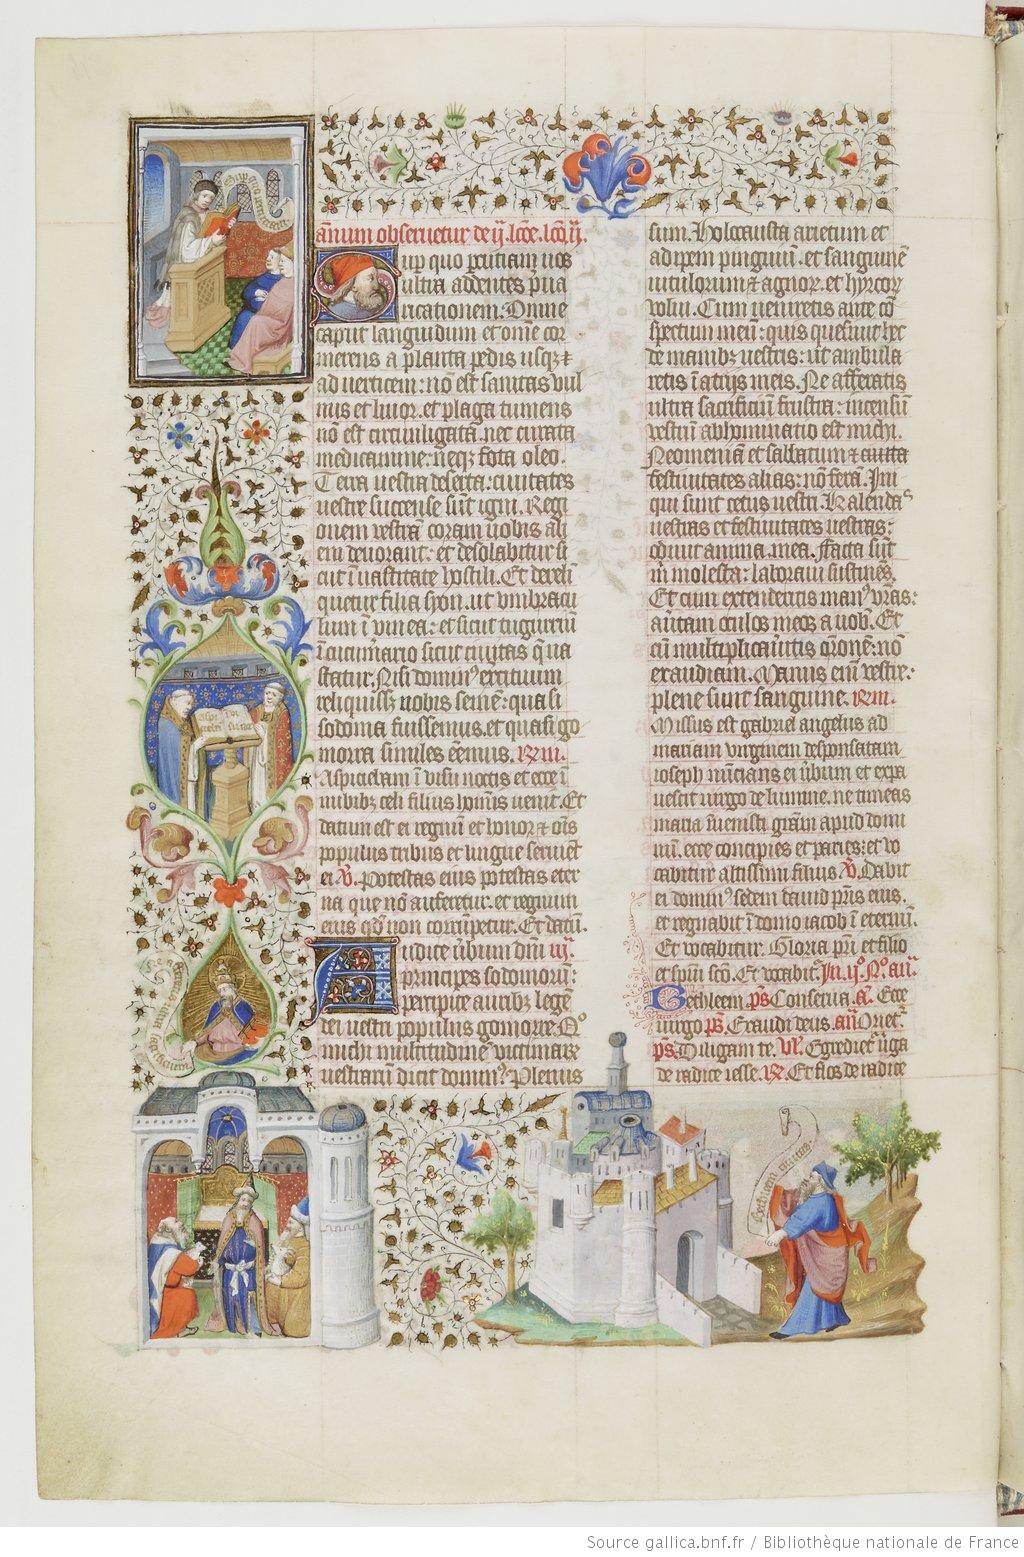 annum observetur de ij. lcōe. lcō ij.
Sup quo p̄cutiam vos
ultra addentes p̄va
ricationem. Omne
caput languidum et om̄e cor
merens a planta pedis usq; ⁊
ad verticem: nō est sanitas vul
nus et livor. et plaga tumens
nō est circūligata. nec curata
medicamine: neq; fota oleo.
Terra vestra deserta: civitates
vestre succense sūt igni. Regi
onem vestrā coram vobis ali
eni devorant: et desolabitur si
cut ī vastitate hostili. Et dereli
quetur filia syon. ut umbracu
lum ī vinea: et sicut tugurium
ī cucumario sicut civitas q̄ va
statur. Nisi domin⁹ exercituum
reliquiss; vobis semē: quasi
sodoma fuissemus. et quasi go
morra similes eēmus.
Aspiciebam ī visu noctis et ecce ī
nubib; celi filius hoīnis venit. Et
datum est ei regnū et honor ⁊ oīs
populus tribus et lingue serviēt
ei ꝟ. Potestas eius potestas eter
na que nō auferetur. et regnum
eius qd̄ non corrūpetur. Et datū.
Audite v̄bum dn̄i iij.
principes sodomorū:
percipite aurib; legē
dei vestri populus gomorre. Q°
michi multitudinē victimarū
vestrarū dicit domin⁹. Plenus
sum. Holocausta arietum et
adipem pinguiū. et sanguinē
vitulorum ⁊ agnoꝝ. et hyrcoꝝ
volui. Cum veniretis ante cō
spectum meū: quis quesivit hec
de manib; vestris: ut ambula
retis ī atrijs meis. Ne afferatis
ultra sacrificiū frustra: incensū
vestrū abhominatio est michi.
Neomeniā et sabbatum ⁊
festivitates alias: nō ferā. Ini
qui sunt cetus vestri. Kalendas
vestras et festivitates vestras:
odivit anima mea. Facta sūt
m molesta: laboravi sustinēs.
Et cum extenderitis man⁹ vr̄as:
avtam oculos meos a vob. Et
cū multiplicav̄itis orōne: nō
exaudiam. Manus enī vestre:
plene sunt sanguine.
Missus est gabriel angelus ad
mariam virginem desponsatam
ioseph nūcians ei v̄bum et expa
vescit virgo de lumine. ne timeas
maria īvenisti grām apud domi
nū. ecce concipies et paries; et vo
cabitur altissimi filius ꝟ. Dabit
ei domin⁹ sedem david pr̄is eius.
et regnabit ī domo iacob ī eternū.
Et vocabitur. Gloria pr̄i et filio
et spūi scō. Et vocabit̄. In ij° N° an̄.
Bethleem p̄s Conserva. an̄. Ecce
virgo p̄s. Exaudi deus. an̄ Oriet̄.
p̄s. Diligam te. Egrediet̄ v̄ga
de radice iesse. Et flos de radice